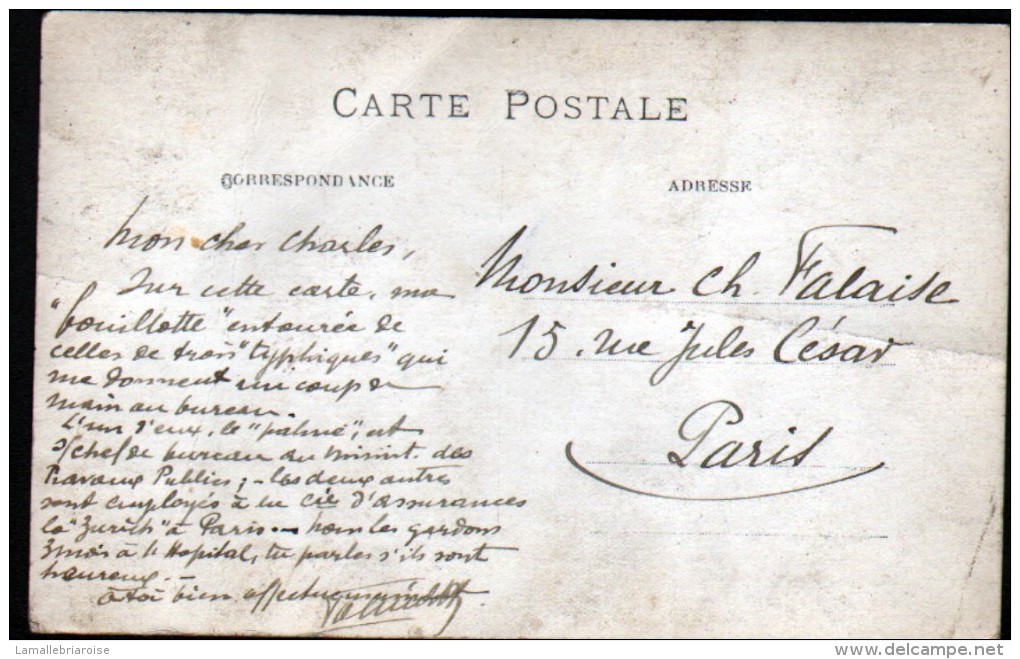 CARTE POSTALE
CORRESPONDANCE
ADRESSE
Mon cher Charles,
Sur cette carte, ma
"bouillotte" entourée de
celles de trois "typhiques" qui
me donnent un coup de
main au bureau.
L'un d'eux, le "palmé", est
s/chef de bureau au minist. des
Travaux Publics ; - les deux autres
sont employés à la Cie d'assurances
la "Zurich" à Paris. - nous les gardons
3 mois à l'Hopital, tu parles s'ils sont
heureux. -
à toi bien affectueusement
Monsieur Ch. Falaise
15, rue Jules César
Paris
Lamallebriaroise